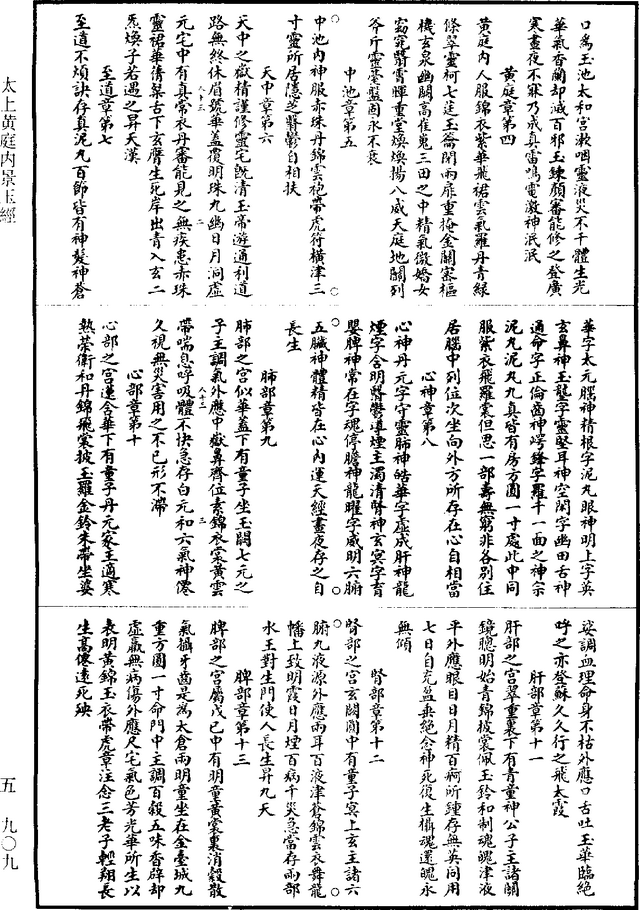 口爲玉池太和宮漱咽靈液災不干體生光
華氣香蘭却滅百邪玉鍊顏審能修之登廣
寒晝夜不寐乃成真雷鳴電激神泯泯
黃庭章第四
黃庭內人服錦衣紫華飛裙雲氣羅丹青綠
條翠靈柯七蕤玉籥閉兩扉重掩金關密樞
機玄泉幽關高崔嵬三田之中精氣微嬌女
窈窕翳霄暉重堂煥煥揚八威天庭地關列
斧斤靈臺盤固永不衰
中池章第五
中池內神服赤珠丹錦雲袍帶虎符橫津三
寸靈所居隱芝翳鬱自相扶
天中章第六
天中之嶽精謹修靈宅既清玉帝遊通利道
路無終休眉號華蓋覆明珠九幽日月洞虛
元宅中有真常衣丹審能見之無疾患赤珠
靈裙華蒨粲舌下玄膺生死岸出青入玄二
炁煥子若遇之昇天漢
至道章第七
至道不煩訣存真泥丸百節皆有神髮神蒼
華字太元腦神精根字泥丸眼神明上字英
玄鼻神玉壟字靈堅耳神空閑字幽田舌神
通命字正倫齒神崿鋒字羅千一面之神宗
泥丸泥丸九真皆有房方圓一寸處此中同
服紫衣飛羅裳但思一部壽無窮非各別住
居腦中列位次坐向外方所存在心自相當
心神章第八
心神丹元字守靈肺神皓華字虛成肝神龍
煙字含明翳鬱導煙主濁清腎神玄冥字育
嬰脾神常在字魂停膽神龍曜字威明六腑
五臟神體精皆在心內運天經晝夜存之自
長生
肺部章第九
肺部之宮似華蓋下有童子坐玉闕七元之
子主調氣外應中嶽鼻齊位素錦衣裳黃雲
帶喘息呼吸體不快急存白元和六氣神僊
久視無災害用之不已形不滯
心部章第十
心部之宮蓮含華下有童子丹元家主適寒
熱榮衛和丹錦飛裳披玉羅金鈴朱帶坐婆
娑調血理命身不枯外應口舌吐玉華臨絕
呼之亦登蘇久久行之飛太霞
肝部章第十一
肝部之宮翠重裏下有青童神公子主諸關
鏡聰明始青錦披裳佩玉鈴和制魂魄津液
平外應眼目日月精百痾所鍾存無英同用
七日自充盈垂絕念神死復生攝魂還魄永
無傾
腎部章第十二
腎部之宮玄闕圓中有童子冥上玄主諸六
腑九液源外應兩耳百液津蒼錦雲衣舞龍
幡上致明霞日月煙百病千災急當存兩部
水王對生門使人長生昇九天
脾部章第十三
脾部之宮屬戊己中有明童黃裳裏消穀散
氣攝牙齒是爲太倉兩明童坐在金臺城九
重方圓一寸命門中主調百穀五味香辟却
虛羸無病傷外應尺宅氣色芳光華所生以
表明黃錦玉衣帶虎章注念三老子輕翔長
生高僊遠死殃
太上黃庭內景玉經
五 九〇九